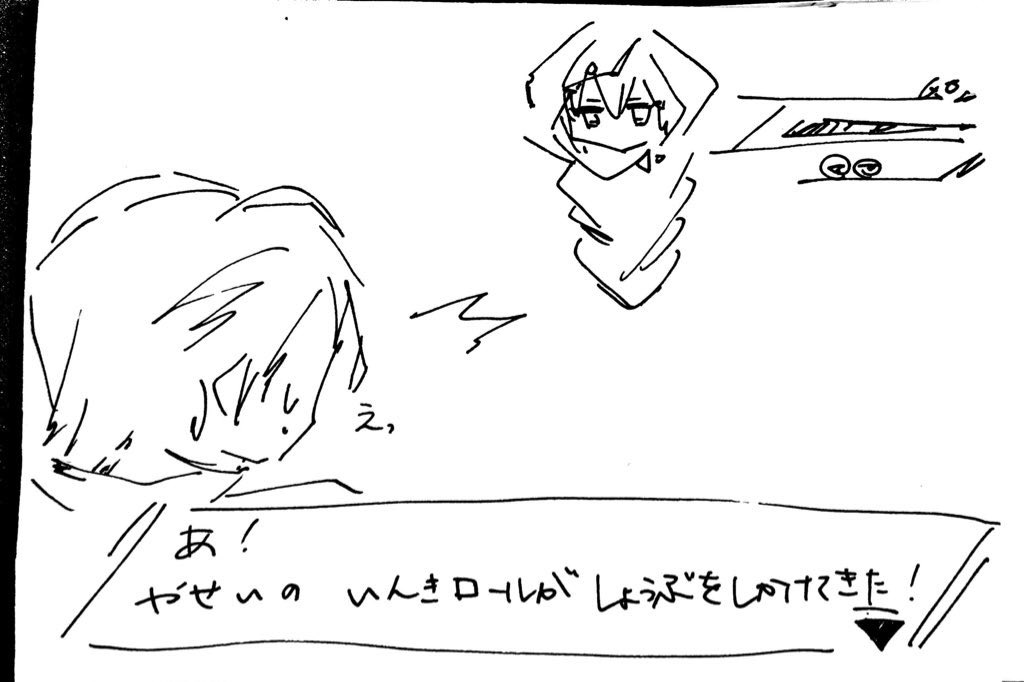 えっ
あ！
やせいの いんきロールがしょうぶをしかけてきた！